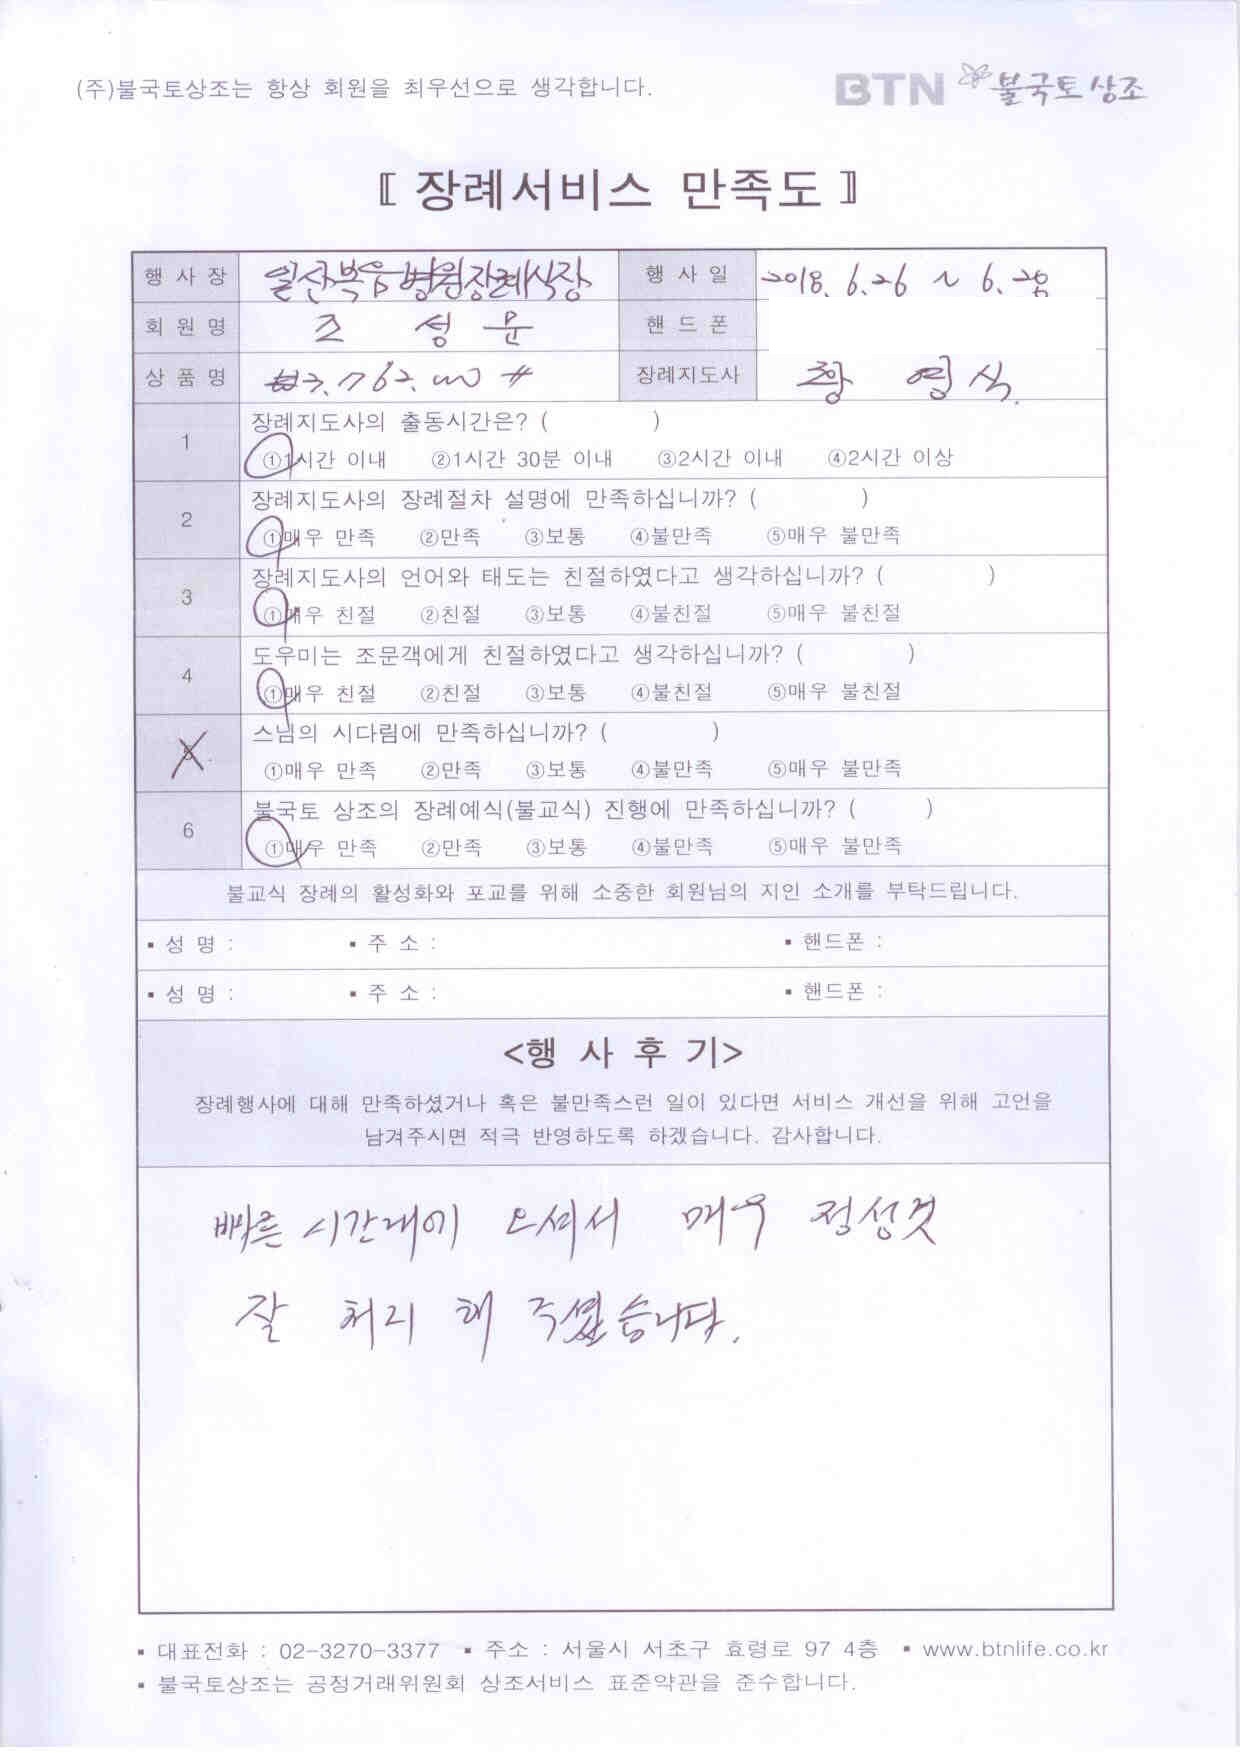 (주)불국토상조는 항상 회원을 최우선으로 생각합니다.
BTN 불국토상조
〖 장례서비스 만족도 〗
행 사 장 일산복음병원장례식장 행 사 일 2018. 6.26 ~ 6.28
회 원 명 조 성 문 핸 드 폰
상 품 명 3.762.000 # 장례지도사 황 영 식.
1 장례지도사의 출동시간은? ( )
①1시간 이내 ②1시간 30분 이내 ③2시간 이내 ④2시간 이상
2 장례지도사의 장례절차 설명에 만족하십니까? ( )
①매우 만족 ②만족 ③보통 ④불만족 ⑤매우 불만족
3 장례지도사의 언어와 태도는 친절하였다고 생각하십니까? ( )
①매우 친절 ②친절 ③보통 ④불친절 ⑤매우 불친절
4 도우미는 조문객에게 친절하였다고 생각하십니까? ( )
①매우 친절 ②친절 ③보통 ④불친절 ⑤매우 불친절
5 스님의 시다림에 만족하십니까? ( )
①매우 만족 ②만족 ③보통 ④불만족 ⑤매우 불만족
6 불국토 상조의 장례예식(불교식) 진행에 만족하십니까? ( )
①매우 만족 ②만족 ③보통 ④불만족 ⑤매우 불만족
불교식 장례의 활성화와 포교를 위해 소중한 회원님의 지인 소개를 부탁드립니다.
▪ 성 명 : ▪ 주 소 : ▪ 핸드폰 :
▪ 성 명 : ▪ 주 소 : ▪ 핸드폰 :
<행 사 후 기>
장례행사에 대해 만족하셨거나 혹은 불만족스런 일이 있다면 서비스 개선을 위해 고언을
남겨주시면 적극 반영하도록 하겠습니다. 감사합니다.
빠른 시간내에 오셔서 매우 정성껏
잘 처리 해 주셨습니다.
▪ 대표전화 : 02-3270-3377 ▪ 주소 : 서울시 서초구 효령로 97 4층 ▪ www.btnlife.co.kr
▪ 불국토상조는 공정거래위원회 상조서비스 표준약관을 준수합니다.